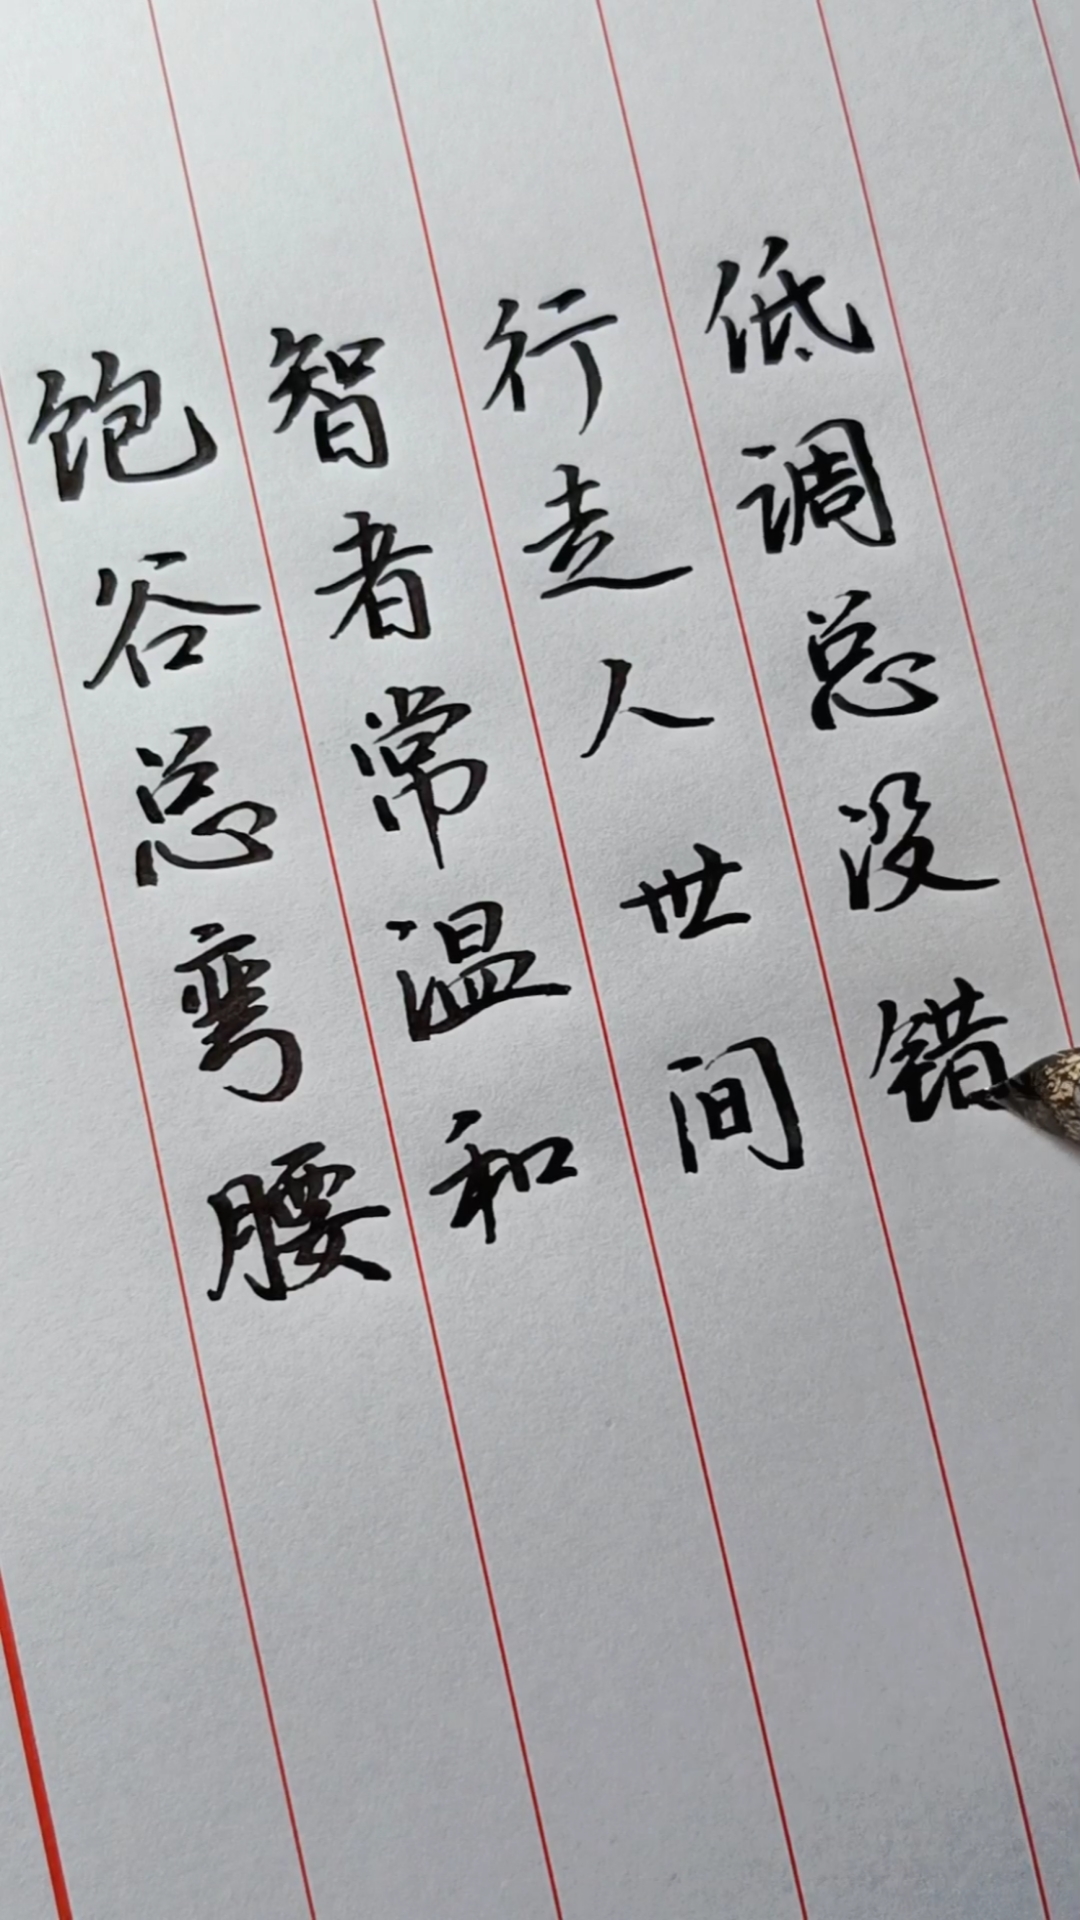 饱谷总弯腰
智者常温和
行走人世间
低调总没错